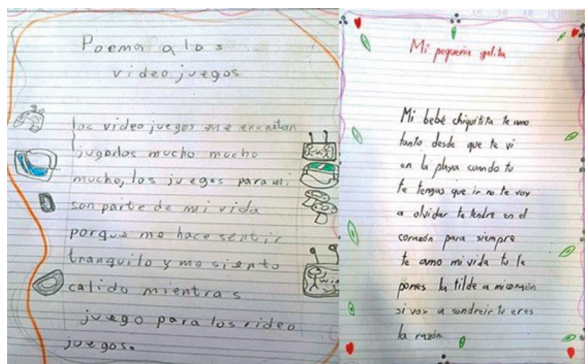 Poema a los
video juegos
los video juegos me encantan
jugarlos mucho mucho
mucho, los juegos para mi
son parte de mi vida
porque me hace sentir
tranquilo y me siento
calido mientras
juego para los video
juegos.
Mi pequeña galita
Mi bebé chiquitita te amo
tanto desde que te vi
en la playa cuando tu
te tengas que ir no te voy
a olvidar te tendre en el
corazón para siempre
te amo mi vida tu le
pones la tilde a mi corazón
si voy a sondreir tu eres
la razón.